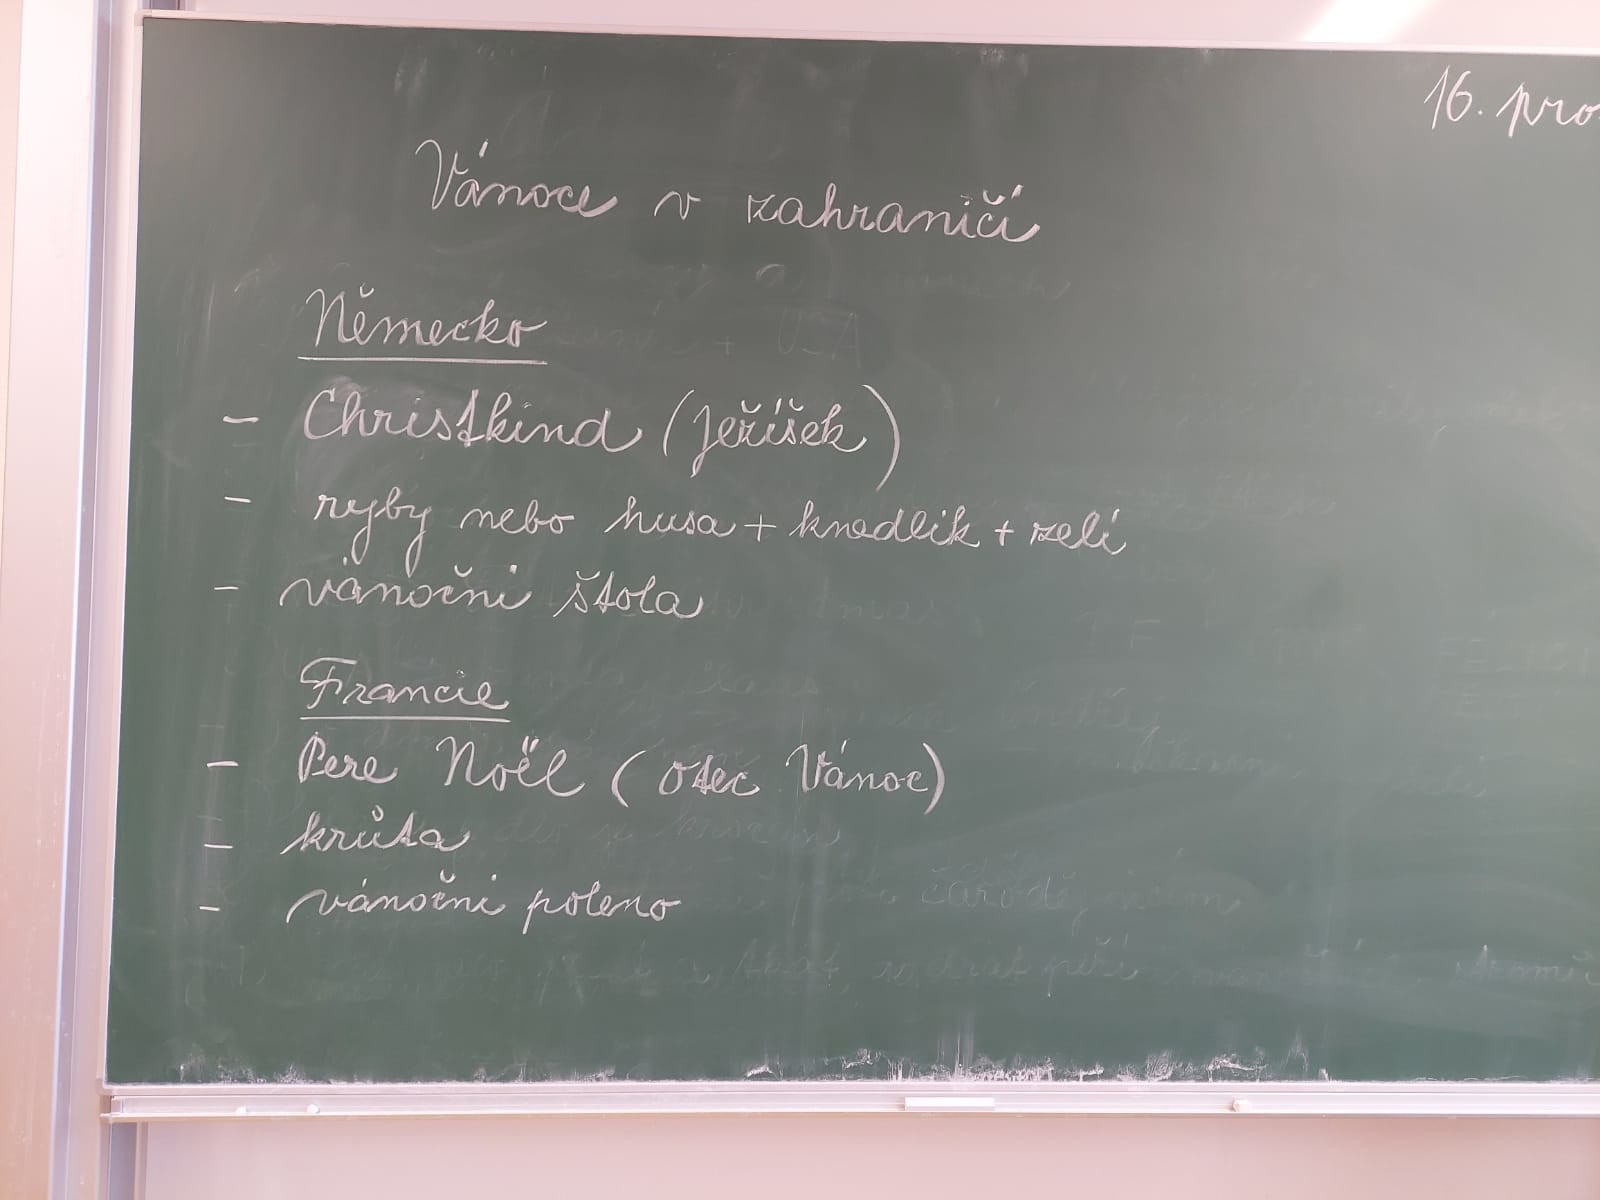 16. pro
Vánoce v zahraničí
Německo
- Christkind (Ježíšek)
- ryby nebo husa + knedlík + zelí
- vánoční štola
Francie
- Pere Noël (Otec Vánoc)
- krůta
- vánoční poleno